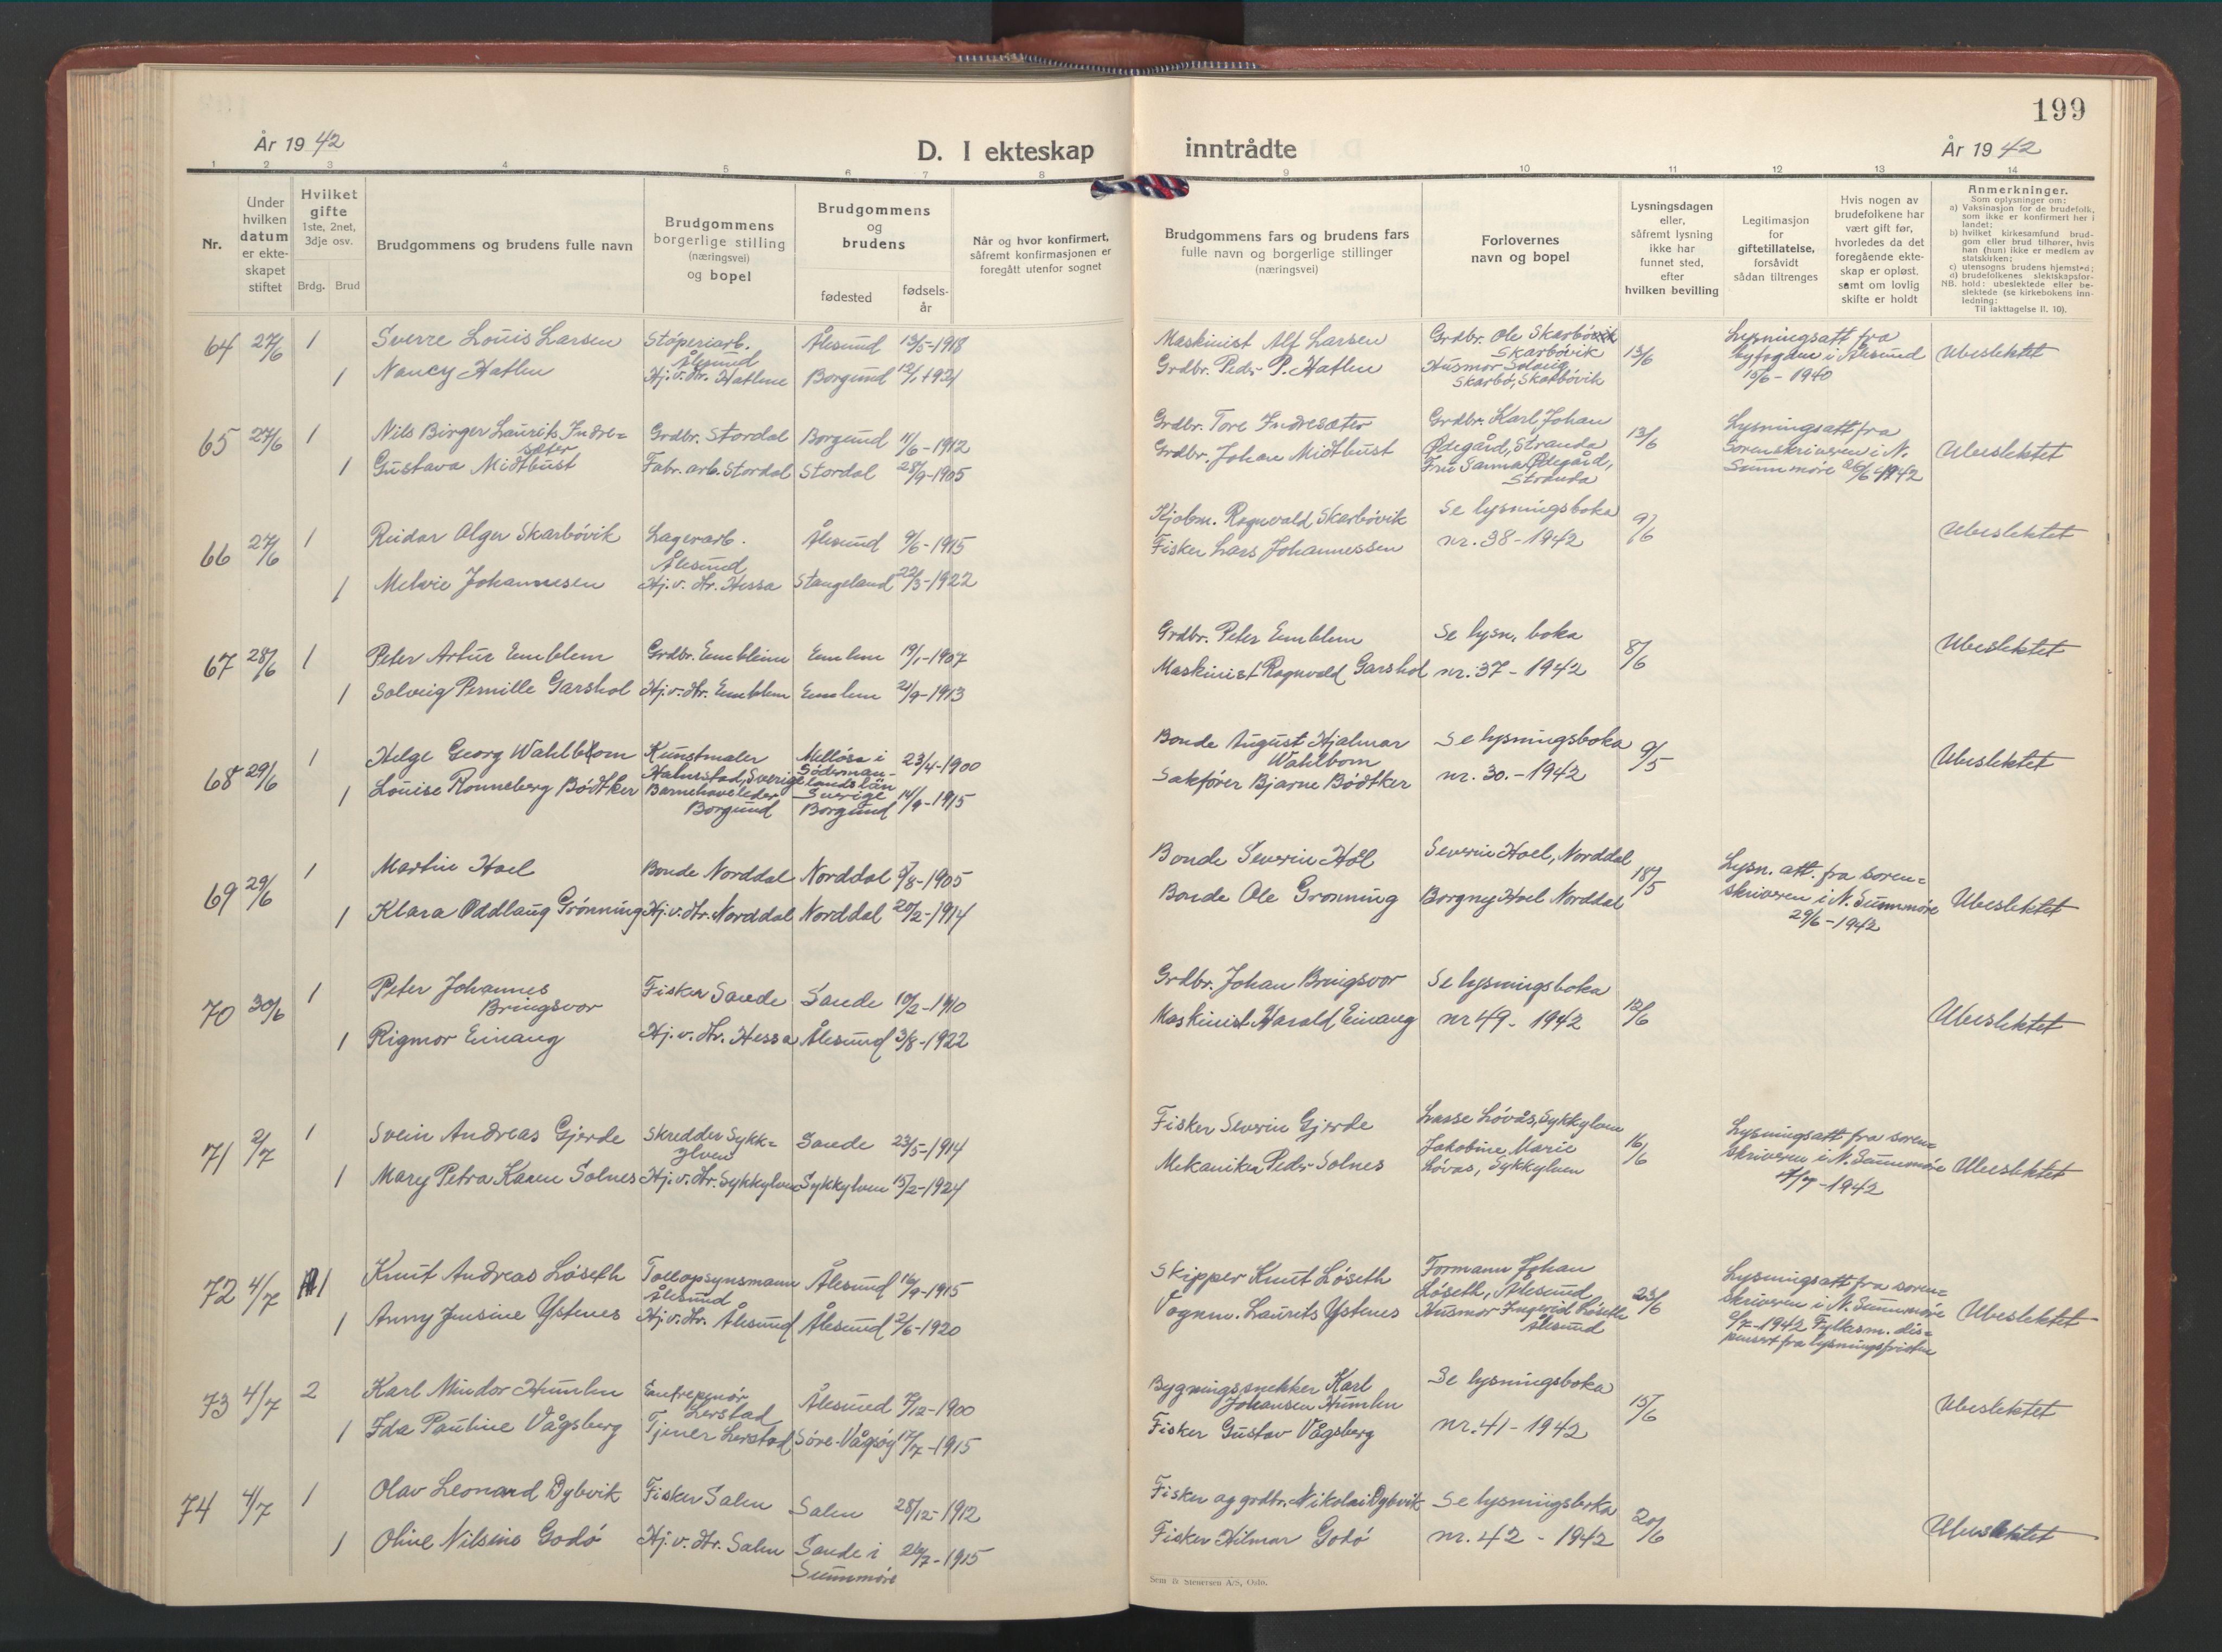 199
År 19 42
D. I ekteskap
inntrådte
År 19 42
1 2 3 4 5 6 7 8 9 10 11 12 13 14
Nr.
Under
hvilken
datum
er ekte-
skapet
stiftet
Hvilket
gifte
1ste, 2net,
3dje osv.
Brdg. Brud
Brudgommens og brudens fulle navn
Brudgommens
borgerlige stilling
(næringsvei)
og bopel
Brudgommens
og
brudens
fødested
fødsels-
år
Når og hvor konfirmert,
såfremt konfirmasjonen er
foregått utenfor sognet
Brudgommens fars og brudens fars
fulle navn og borgerlige stillinger
(næringsvei)
Forlovernes
navn og bopel
Lysningsdagen
eller,
såfremt lysning
ikke har
funnet sted,
efter
hvilken bevilling
Legitimasjon
for
giftetillatelse,
forsåvidt
sådan tiltrenges
Hvis nogen av
brudefolkene har
vært gift før,
hvorledes da det
foregående ekte-
skap er opløst,
samt om lovlig
skifte er holdt
Anmerkninger.
Som oplysninger om:
a) Vaksinasjon for de brudefolk,
som ikke er konfirmert her i
landet;
b) hvilket kirkesamfund brud-
gom eller brud tilhører, hvis
han (hun) ikke er medlem av
statskirken;
c) utensogns brudens hjemsted;
d) brudefolkenes slektskapsfor-
NB. hold: ubeslektede eller be-
slektede (se kirkebokens inn-
ledning:
Til iakttagelse II. 10).
64 27/6 1 Sverre Louis Larsen Støperiarb. Ålesund 13/5-1918 Maskinist Alf Larsen Grdbr. Ole Skarbøvik
Ålesund Skarbøvik 13/6 Lysningsatt fra
Byfogden i Ålesund Ubeslektet
15/6-1940
1 Nancy Hatlen Hj.v.Hr. Hatlene Borgund Grdbr. Peder P. Hatlen Husmor Solveig
Skarbø, Skarbøvik
65 27/6 1 Nils Birger Laurits Indre=
sæter Grdbr. Stordal Borgund 11/6-1912 Grdbr. Tore Indresæter Grdbr. Karl Johan
Ødegård, Stranda 13/6 Lysningsatt fra
Sorenskriveren i N.
Sunnmøre 26/6 1942 Ubeslektet
1 Gustava Midtbust Fabr.arb. Stordal Stordal 28/9-1905 Grdbr. Johan Midtbust Fru Sanna Ødegård,
Stranda
66 27/6 1 Reidar Olger Skarbøvik Lagerarb.
Ålesund Ålesund 9/6-1915 Kjøbm. Ragnvald Skarbøvik Se lysningsboka 9/6 Ubeslektet
1 Melvie Johannesen Hj.v.Hr. Hessa Stangeland 22/3-1922 Fisker Lars Johannessen nr. 38-1942
67 28/6 1 Peter Artur Emblem Grdbr. Emblem Emblem 19/1-1907 Grdbr. Peter Emblem Se lysn. boka 8/6 Ubeslektet
1 Solveig Pernille Garshol Hj.v.Hr. Emblem Emblem 21/9-1913 Maskinist Ragnvald Garshol nr. 37-1942
68 29/6 1 Helge Georg Wahlbom Kunstmaler
Halmstad, Sverige Mellösa i
Södermanlands län
Sverige 23/4-1900 Bonde August Hjalmar
Wahlbom Se lysningsboka 9/5 Ubeslektet
1 Louise Rønneberg Bødtker Barnehaveleder
Borgund Borgund 14/9-1915 Sakfører Bjarne Bødtker nr. 30.-1942
69 29/6 1 Martin Hoel Bonde Norddal Norddal 9/8-1905 Bonde Severin Hol Severin Hoel, Norddal 18/5 Lysn. att. fra soren=
skriveren i N. Sunnmøre
29/6-1942 Ubeslektet
1 Klara Oddlaug Grønning Hj.v.Hr. Norddal Norddal 20/2-1914 Bonde Ole Grønning Borgny Hoel Norddal
70 30/6 1 Peter Johannes
Bringsvor Fisker Sande Sande 10/2-1910 Grdbr. Johan Bringsvor Se lysningsboka 12/6 Ubeslektet
1 Rigmor Einang Hj.v.Hr. Hessa Ålesund 3/8-1922 Maskinist Harald Einang nr 49-1942
71 2/7 1 Svein Andreas Gjerde Skredder Sykk=
ylven Sande 23/5-1914 Fisker Severin Gjerde Lasse Løvås, Sykkylven 16/6 Lysningsatt fra soren=
skriveren i N. Sunnmøre Ubeslektet
1 Mary Petra Karen Solnes Hj.v.Hr. Sykkylven Sykkylven 15/2-1924 Mekaniker Peder Solnes Jakobine Marie
Løvås, Sykkylven
72 4/7 1 Knut Andreas Løseth Tollopsynsmann
Ålesund Ålesund 16/9-1915 Skipper Knut Løseth Formann Johan
Løseth, Ålesund 23/6 Lysningsatt fra soren=
skriveren i N. Sunnmøre
Fylkesm. dis=
pensert fra lysningsfristen Ubeslektet
1 Anny Jensine Ystenes Hj.v.Hr. Ålesund Ålesund 2/6-1920 Vognm. Laurits Ystenes Husmor Ingerid Løseth
Ålesund
73 4/7 2 Karl Mindor Humlen Entreprenør
Lerstad Ålesund 7/12-1900 Bygningssnekker Karl
Johansen Humlen Se lysningsboka 15/6 Ubeslektet
1 Ida Pauline Vågsberg Tjener Lerstad Søre-Vågsøy 17/7-1915 Fisker Gustav Vågsberg nr. 41-1942
74 4/7 1 Olav Leonard Dybvik Fisker Salen Salen 28/12-1912 Fisker og grdbr. Nikolai Dybvik Se lysningsboka 20/6 Ubeslektet
1 Oline Nilsine Godø Hj.v.Hr. Salen Sande i
Sunnmøre 26/7-1915 Fisker Hilmar Godø nr. 42-1942
Sem & Stenersen A/S, Oslo.